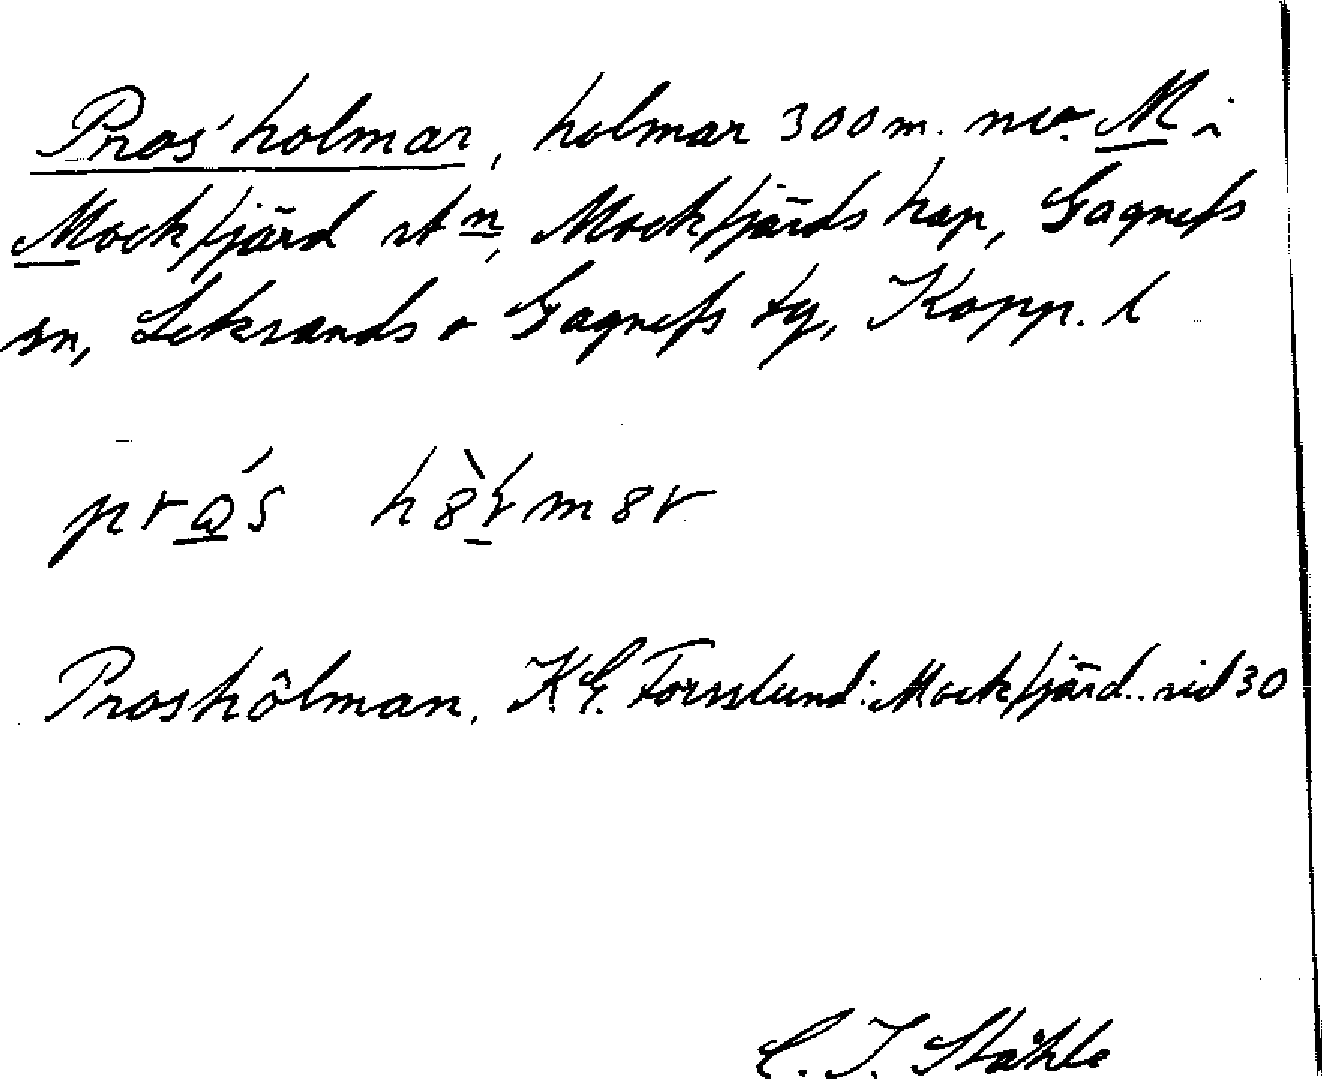 Pros' holmar, holmar 300 m. nv. M i
Mockfjärd stn, Mockfjärds kap, Gagnefs
sn, Leksands o Gagnefs tg, Kopp. l
Proshôlman, K E. Forsslund: Mockfjärd.. sid 30
C. I. Ståhle